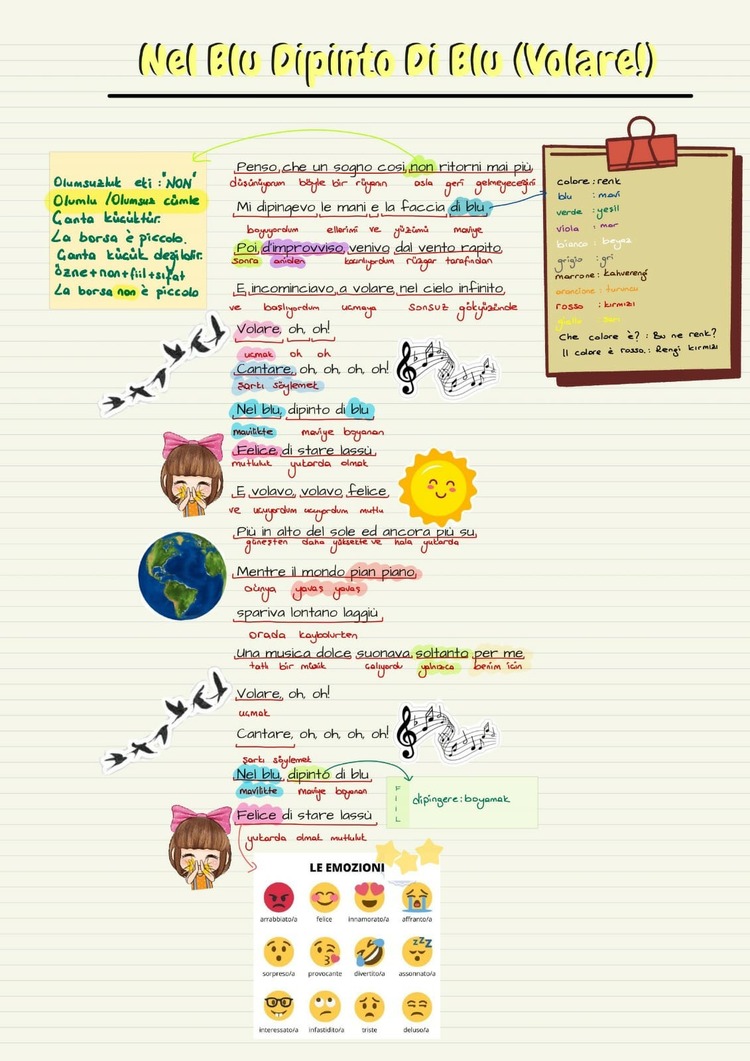 Nel Blu Dipinto Di Blu (Volare!)
Olumsuzluk eki : 'NON'
Olumlu /Olumsuz cümle
Çanta küçüktür.
La borsa è piccolo.
Çanta küçük değildir.
özne+non+fiil+sıfat
La borsa non è piccolo
Penso che un sogno così non ritorni mai più
düşünüyorum böyle bir rüyanın asla geri gelmeyeceğini
Mi dipingevo le mani e la faccia di blu
boyuyordum ellerimi ve yüzümü maviye
Poi d'improvviso venivo dal vento rapito
sonra aniden kaçırılıyordum rüzgar tarafından
E incominciavo a volare nel cielo infinito
ve başlıyordum uçmaya sonsuz gökyüzünde
Volare, oh, oh!
uçmak oh oh
Cantare, oh, oh, oh, oh!
şarkı söylemek
Nel blu, dipinto di blu
mavilikte maviye boyanan
Felice di stare lassù
mutluluk yukarda olmak
E volavo, volavo felice
ve uçuyordum uçuyordum mutlu
Più in alto del sole ed ancora più su
güneşten daha yüksekte ve hala yukarda
Mentre il mondo pian piano
Dünya yavaş yavaş
spariva lontano laggiù
orada kaybolurken
Una musica dolce suonava soltanto per me
tatlı bir müzik çalıyordu yalnızca benim için
Volare, oh, oh!
uçmak
Cantare, oh, oh, oh, oh!
şarkı söylemek
Nel blu, dipinto di blu
mavilikte maviye boyanan
Felice di stare lassù
yukarda olmak mutluluk
colore:renk
blu : mavi
verde : yeşil
viola : mor
bianco : beyaz
grigio : gri
marrone: kahverengi
arancione : turuncu
rosso : kırmızı
giallo : sarı
Che colore è? : Bu ne renk?
Il colore è rosso.: Rengi kırmızı
FİİL
dipingere:boyamak
LE EMOZIONI
arrabbiato/a felice innamorato/a affranto/a
sorpreso/a provocante divertito/a assonnato/a
interessato/a infastidito/a triste deluso/a